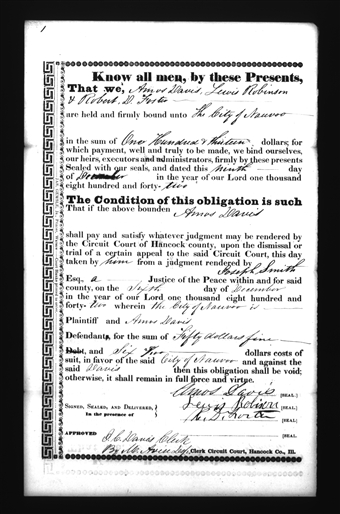 1
Know all men, by these Presents,
That we, Amos Davis, Lewis Robinson
& Robert D. Foster
are held and firmly bound unto The City of Nauvoo
in the sum of One Hundred & thirteen dollars; for
which payment, well and truly to be made, we bind ourselves,
our heirs, executors and administrators, firmly by these presents
Sealed with our seals, and dated this ninth day
of December in the year of our Lord one thousand
eight hundred and forty-two
The Condition of this obligation is such
That if the above bounden Amos Davis
shall pay and satisfy whatever judgment may be rendered by
the Circuit Court of Hancock county, upon the dismissal or
trial of a certain appeal to the said Circuit Court, this day
taken by him from a judgment rendeged by
Joseph Smith
Esq. a Justice of the Peace within and for said
county, on the sixth day of December
in the year of our Lord one thousand eight hundred and
forty-two wherein the City of Nauvoo is
Plaintiff and Amos Davis
Defendants, for the sum of Fifty dollars fine
Debt, and six two dollars costs of
suit, in favor of the said City of Nauvoo and against the
said Davis then this obligation shall be void;
otherwise, it shall remain in full force and virtue.
Amos Davis [SEAL.]
Lewis Robinson [SEAL]
SIGNED, SEALED, AND DELIVERED,
in the presence of
R. D. Foster [SEAL.]
[SEAL.
APPROVED
J. C. Davis Clerk
By Clerk Circuit Court, Hancock Co., Ill.